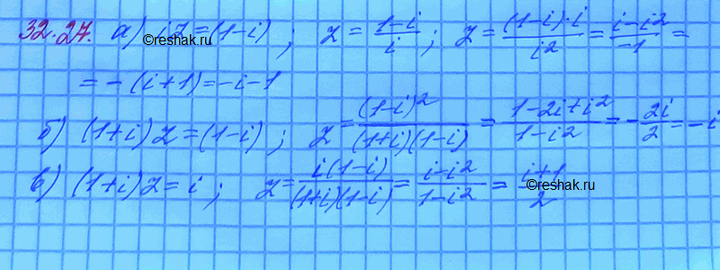 32.27. а) iz = (1-i) ; z = \frac{1-i}{i} ; z = \frac{(1-i)·i}{i^2} = \frac{i-i^2}{-1} =
©reshak.ru
= -(i+1) = -i-1
б) (1+i) z = (1-i) ; z = \frac{(1-i)^2}{(1+i)(1-i)} = \frac{1-2i+i^2}{1-i^2} = -\frac{2i}{2} = -i
в) (1+i) z = i ; z = \frac{i(1-i)}{(1+i)(1-i)} = \frac{i-i^2}{1-i^2} = \frac{i+1}{2}
©reshak.ru